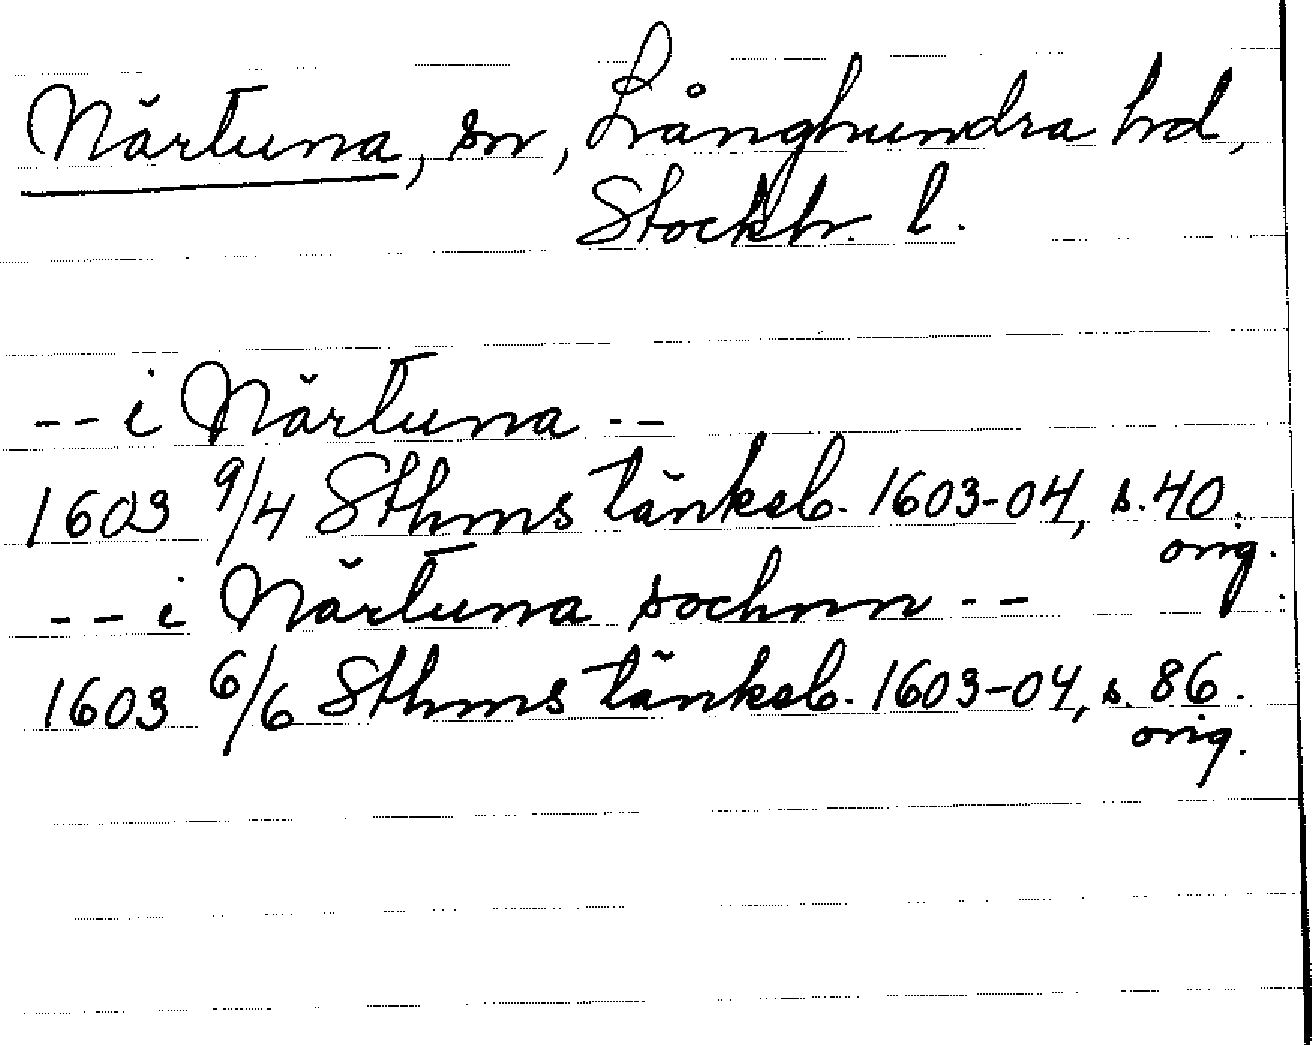 Närtuna, sn, Långhundra hd,
Stockh. l.
-- i Närtuna --
1603 9/4 Sthms tänkeb. 1603-04, s. 40.
orig.
-- i Närtuna sochnn --
1603 6/6 Sthms tänkeb. 1603-04, s. 86.
orig.